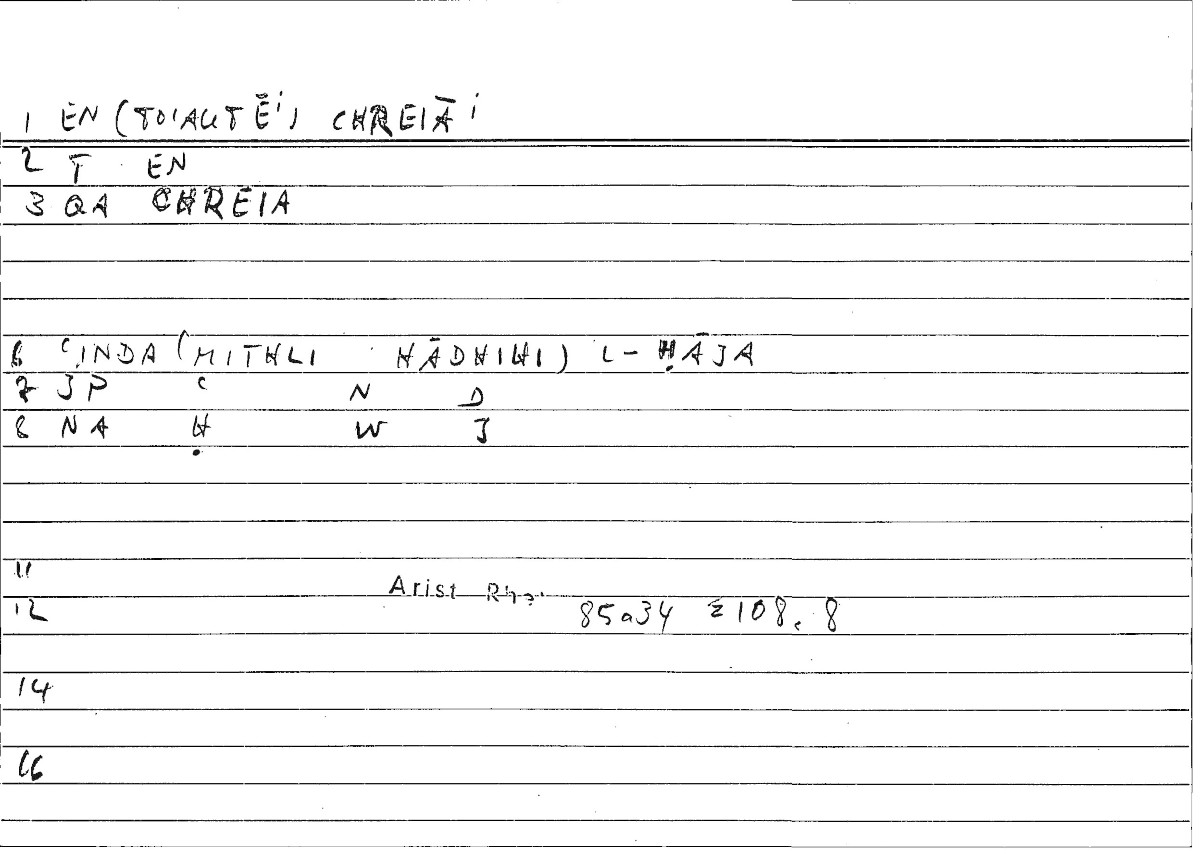 1 EN (TOIAUTĒI) CHREIĀI
2 T EN
3 QA CHREIA
6 ʿINDA (MITHLI HĀDHIHI) L-ḤĀJA
7 JP ʿ N D
8 NA Ḥ W J
11
Arist Rhet.
12 85a34 ≅ 108, 8
14
16